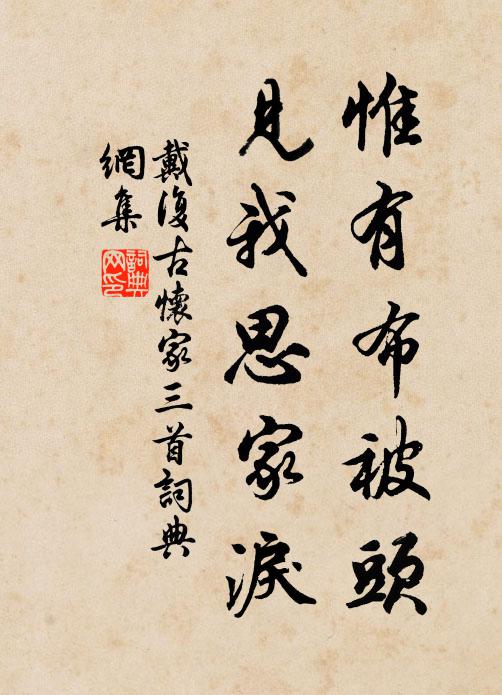 惟有布被頭
見我思家淚
戴復古懷家三首詞典
網集
詞典网印